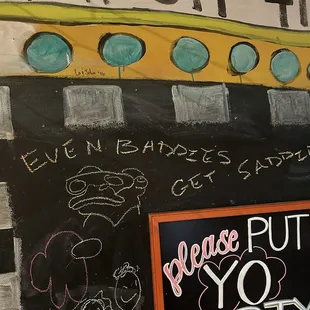 EVEN BADDIES
GET SADDIE
please PUT
YO